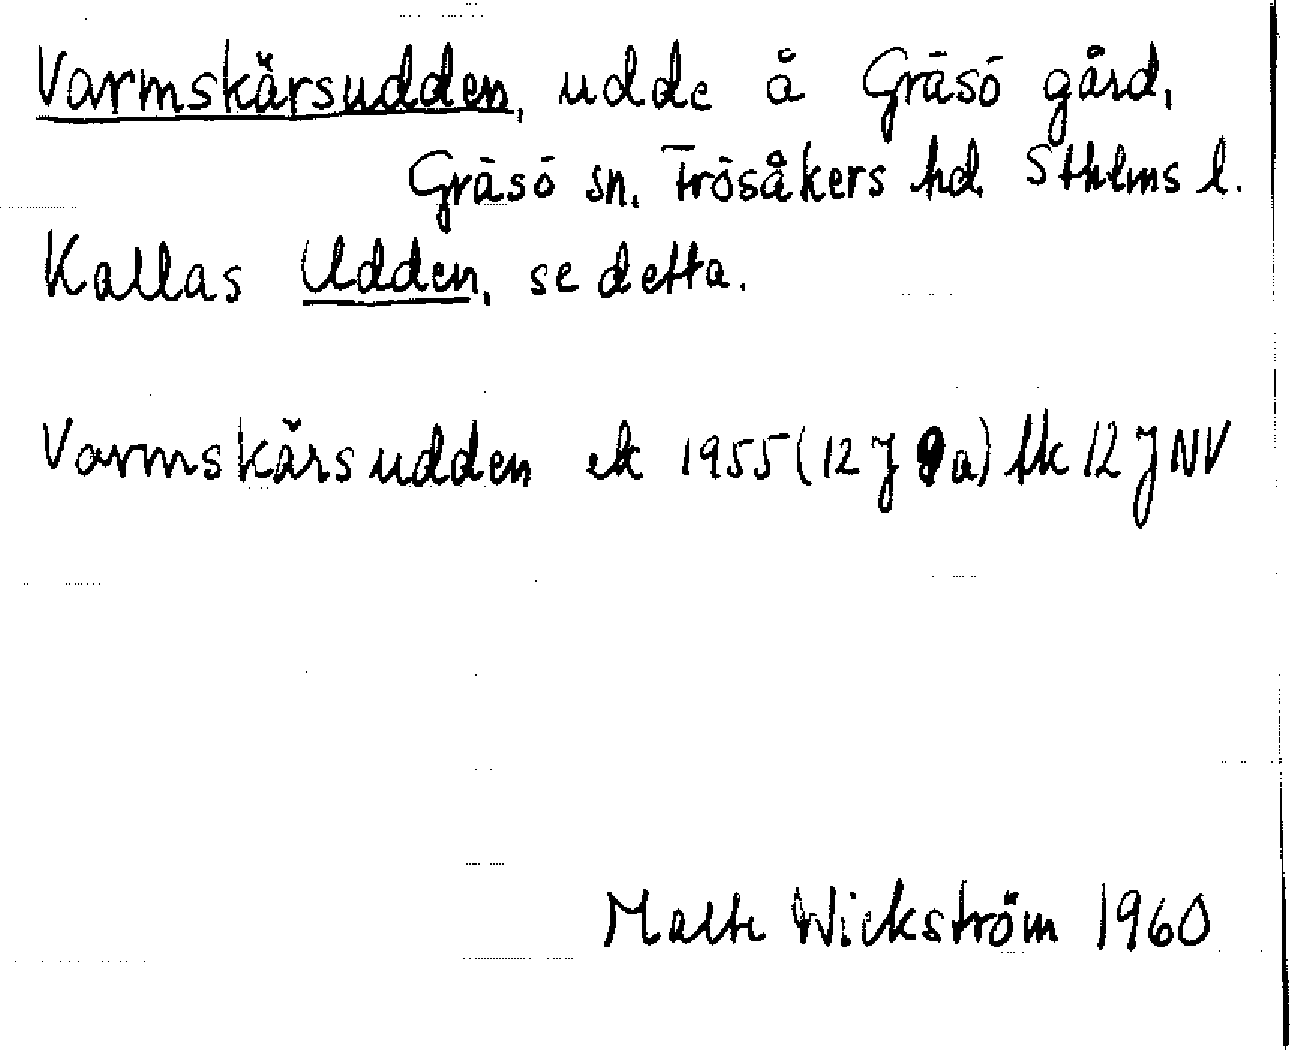 Varmskärsudden, udde å Gräsö gård,
Gräsö sn. Frösåkers hd Sthlms l.
Kallas Udden, se detta.
Varmskärsudden ek 1955 (12 J 9a) tk 12 J NV
Malte Wickström 1960